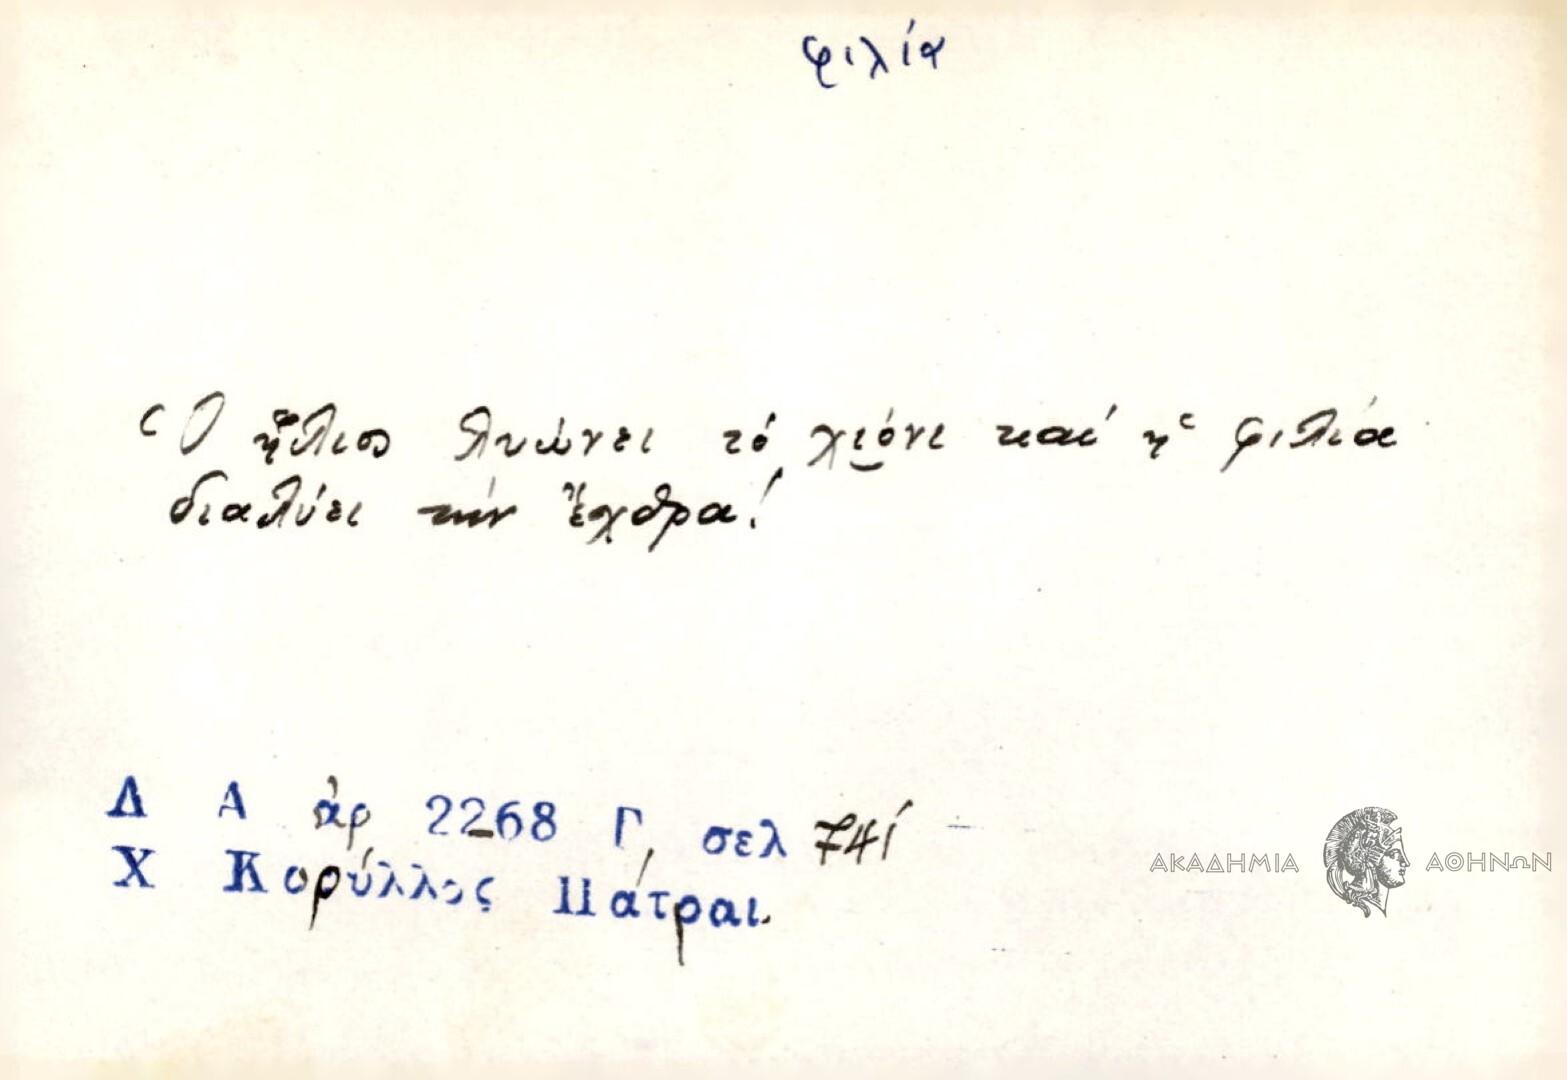 φιλία
Ὁ ἥλιος λυώνει τό χιόνι καί ἡ φιλιά
διαλύει τήν ἔχθρα!
Λ Α ἀρ 2268 Γ, σελ 741
Χ Κορύλλος Πάτραι.
ΑΚΑΔΗΜΙΑ ΑΘΗΝΩΝ